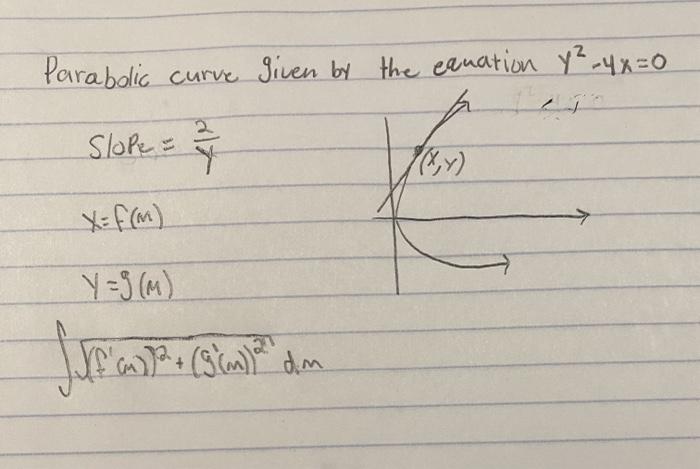 Parabolic curve given by the equation y²-4x=0
Slope = 2/y
(x,y)
x=f(m)
y=g(m)
∫√(f'(m))²+(g'(m))² dm